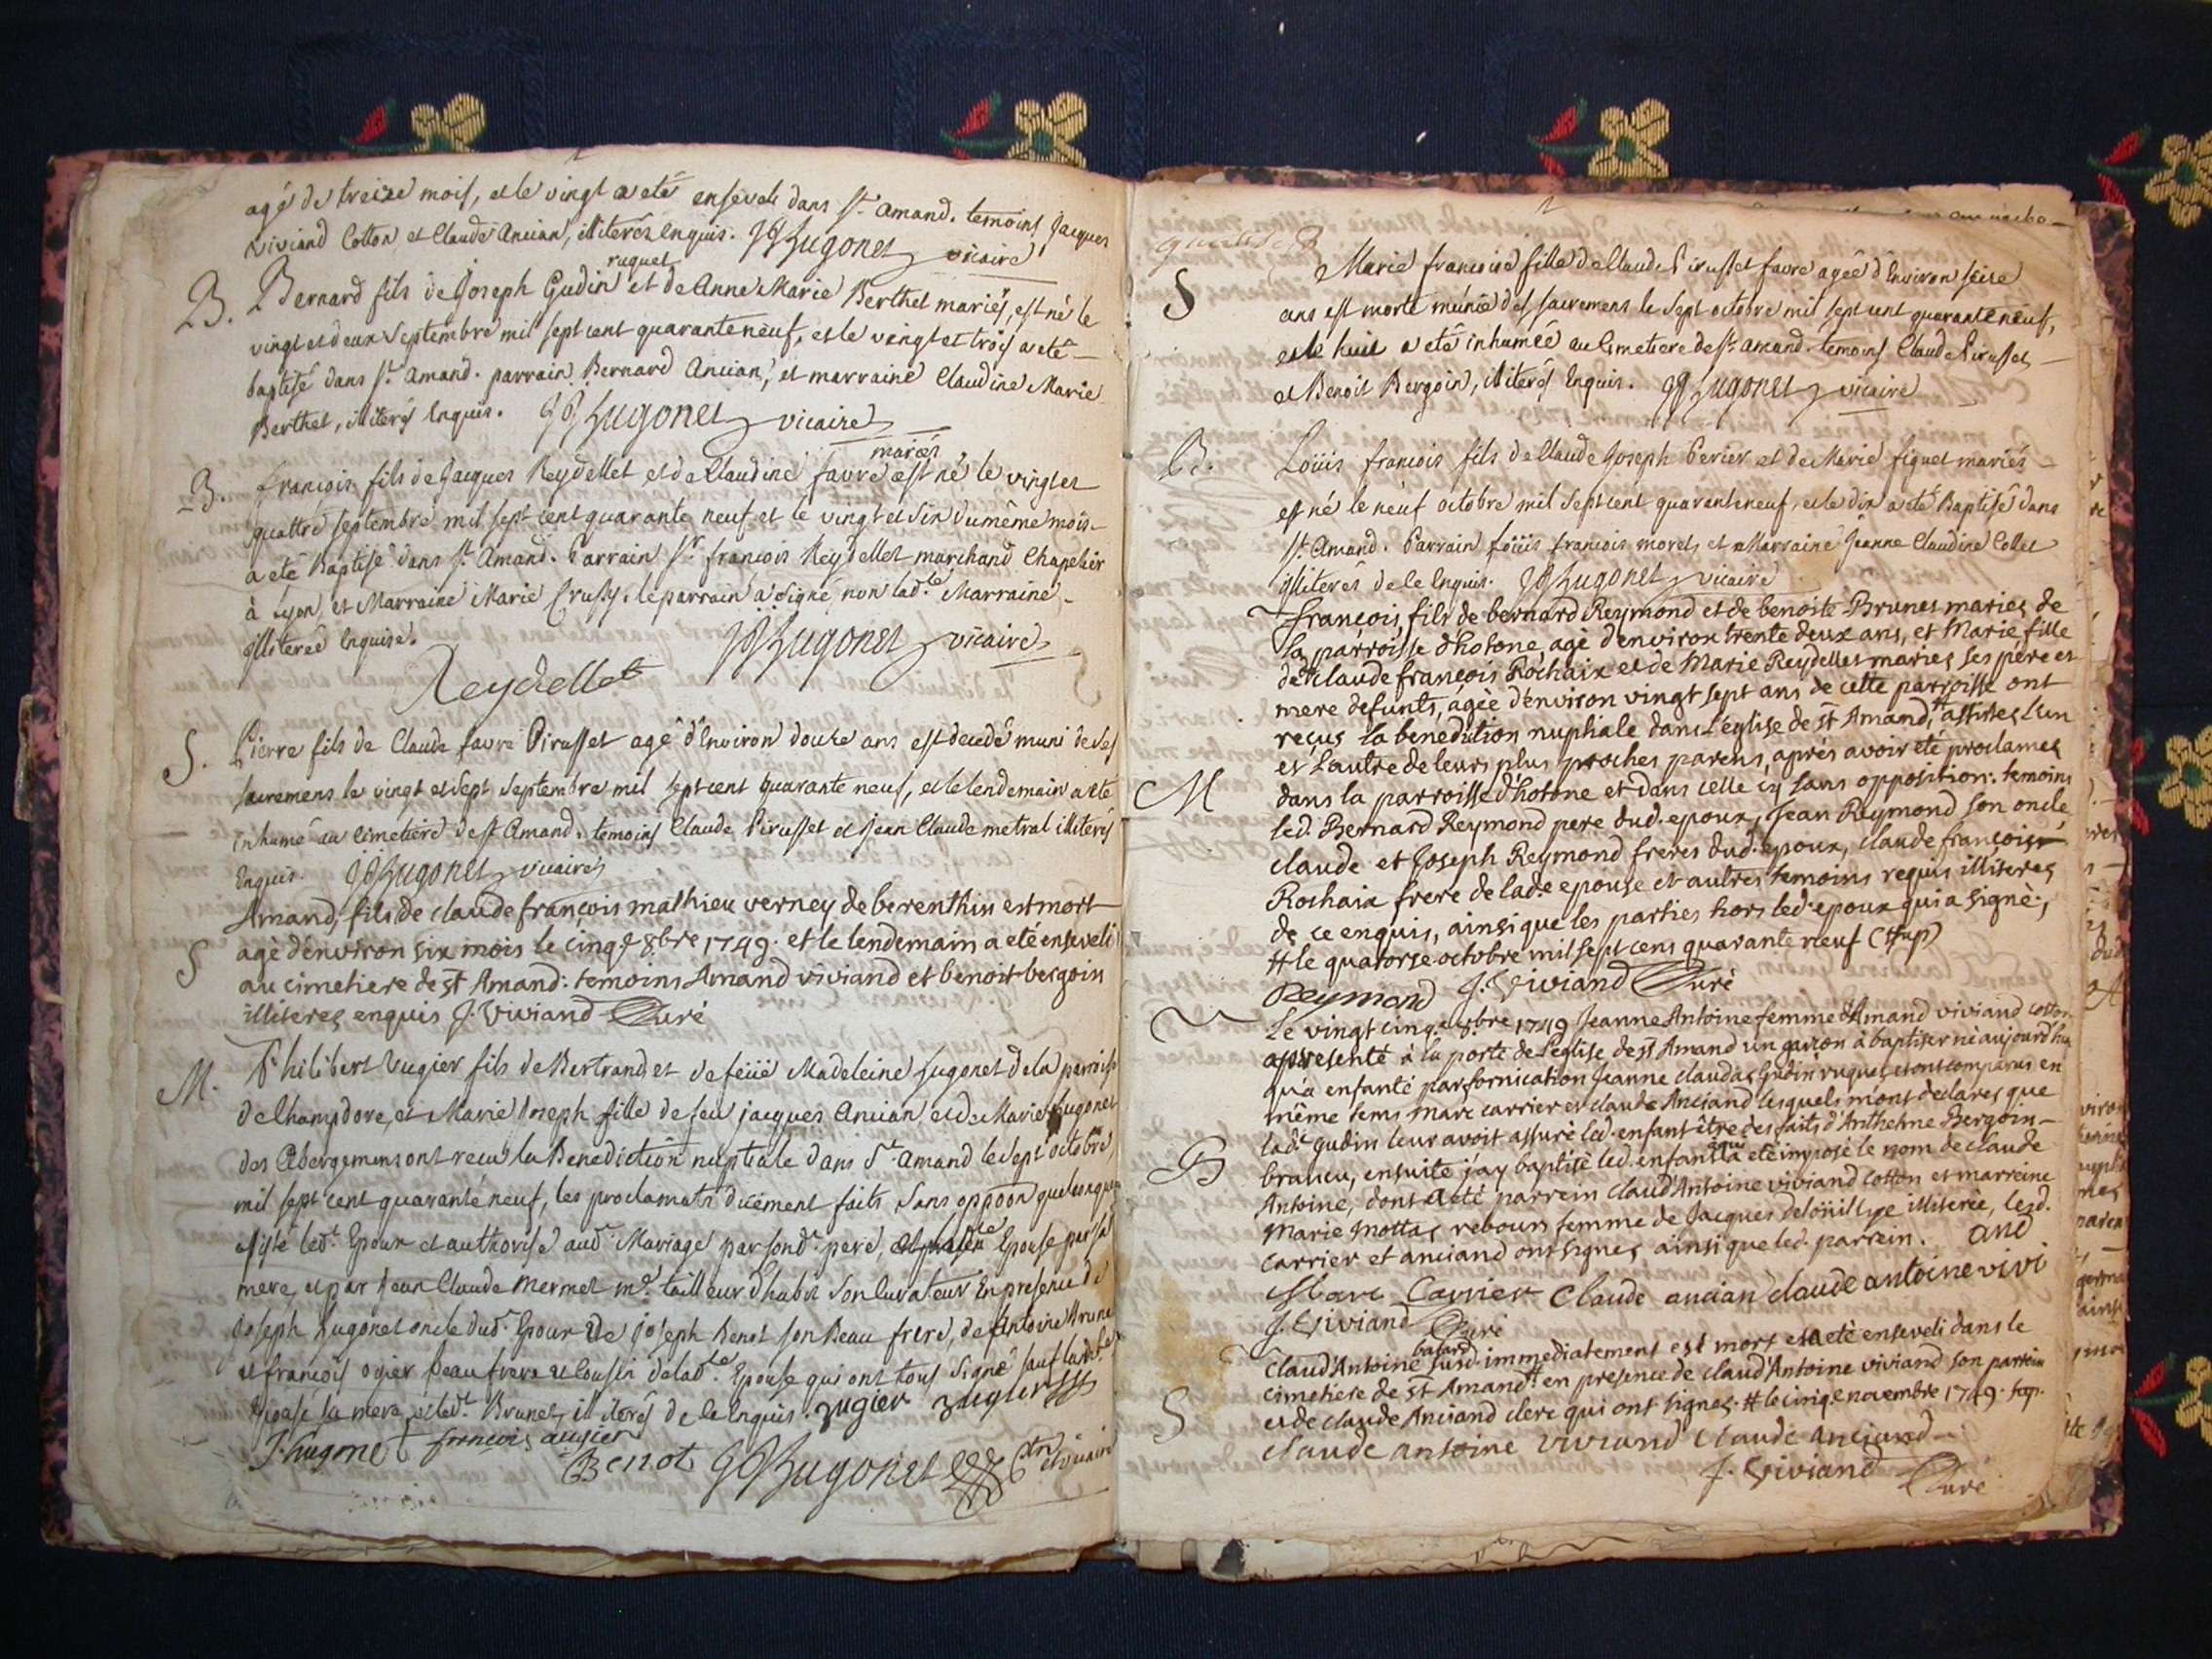 agé de treize mois, et le vingt a eté enseveli dans St. amand. temoins Jacques
Viviand Cotton et Claude Ancian, illiterés enquis. JJ Hugonet vicaire
ruquet
B. Bernard fils de Joseph Gudin et de Anne Marie Berthet mariés, est né le
vingt et deux Septembre mil sept cent quarante neuf, et le vingt et trois a eté
baptisé dans St. amand. parrain Bernard Ancian, et marraine Claudine Marie
Berthet, illiterés enquis. Hugonet vicaire
mariés
B. françois fils de Jacques Reydellet et de Claudine favre est né le vingt et
quattre septembre mil sept cent quarante neuf et le vingt et six du même mois
a eté Baptisé dans St. Amand. Parrain Sr. francois Reydellet marchand Chapelier
à Lyon, et Marraine Marie Crussy. le parrain a signé non lad.te Marraine
illiterée enquise. Hugonet vicaire
Reydellet
S. Pierre fils de Claude favre Pirusset agé d'Environ douze ans est decedé muni de ses
sacremens le vingt et sept septembre mil sept cent quarante neuf, et le lendemain a eté
inhumé au cimetiere de St Amand. temoins Claude Pirusset et Jean Claude metral illiterés
Enquis. Hugonet vicaire
Amand, fils de claude françois mathieu verney de berenthin est mort
S agè d'environ six mois le cinq.e 8bre 1749. et le lendemain a eté enseveli
au cimetiere de st Amand: temoins Amand viviand et benoit bergoin
illiteres enquis J. Viviand Curé
M. Philibert Vugier fils de Bertrand et de feüe Madeleine hugonet de la parroisse
de Champdore, et Marie Joseph fille de feu jacques Ancian et de Marie hugonet
des Abergemens ont recu la Benediction nuptiale dans St. amand le Sept octobre
mil sept cent quarante neuf, les proclamatns düement faits sans oppoon quelconque
assisté led.t Epoux et authorisé aud.t Mariage par sond.t pere, Epouse par sa
mere, et par Jean Claude mermet m.e tailleur d'habit son Curateur En presence de
Joseph hugonet oncle dud.t Epoux de joseph Benot son Beau frere, de Antoine Brunet
et françois ogier beau frere et Cousin de lad.te Epouse qui ont tous signé sauf lad.te
Epouse sa mere, et led.t Brunet, illiterés de ce Enquis. zugier zugier
J. hugonet francois augier
Benot Hugonet
S Marie francoise fille de Claude Pirusset favre agée d'Environ seise
ans est morte munie des sacremens le sept octobre mil sept cent quarante neuf,
et le huit a eté inhumée au Cimetiere de St. amand. temoins Claude Pirusset
et Benoit Bergoin, illiterés Enquis. Hugonet vicaire
B. Loüis francois fils de Claude Joseph Perier et de Marie figuet mariés
est né le neuf octobre mil sept cent quarante neuf, et le dix a eté Baptisé dans
St. Amand. Parrain Loüis francois moret, et Marraine Jeanne Claudine Collet
illiterés de ce Enquis. Hugonet vicaire
françois, fils de bernard Reymond et de benoite Brunet mariez de
la parroisse d'hotone, agè d'environ trente deux ans, et Marie fille
de claude françois Rochaix et de Marie Reydellet mariez ses pere et
mere defunts, agèe d'environ vingt sept ans de cette parroisse ont
reçus la benediction nuptiale dans l'église de st Amand, # assistez l'un
et l'autre de leurs plus proches parens, après avoir eté proclamez
M dans la parroisse d'hotone et dans celle cy sans opposition: temoins
led. Bernard Reymond pere dud. epoux, Jean Reymond son oncle
claude et Joseph Reymond freres dud. epoux, claude françois
Rochaix frere de lad.e epouse et autres temoins requis illiterez
de ce enquis, ainsi que les parties hors led. epoux qui a signè.,
# le quatorse octobre mil sept cens quarante neuf (# sup)
Reymond J. Viviand Curé
Le vingt cinq.e 8bre 1749 Jeanne Antoine femme d'Amand viviand cotton
a presenté à la porte de l'église de st Amand un garson à baptiser nè aujourd'huy
qu'a enfanté par fornication Jeanne claudaz Gudin ruquet, et ont comparus en
même tems Marc carrier et claude Anciand lesquels m'ont declarez que
lad.e gudin leur avoit assurè led. enfant être des faits d'Anthelme Bergoin
à qui
B brancu, ensuite j'ay baptisè led. enfant a eté imposé le nom de claude
Antoine, dont a eté parrein claud'Antoine viviand cotton et marreine
Marie mottaz rebours femme de Jacques illiterèe, lesd.
carrier et anciand ont signez ainsi que led. parrein. and
Marc Carrier Claude ancian claude antoine vivi
J. Viviand Curé
batard
Claud'Antoine susd. immediatement est mort et a eté enseveli dans le
cimetiere de st Amand # en presence de claud'Antoine viviand son parrein
S et de claude Anciand clerc qui ont signez. # le cinq.e novembre 1749. sup.
claude antoine viviand claude anciand
J. Viviand Curé